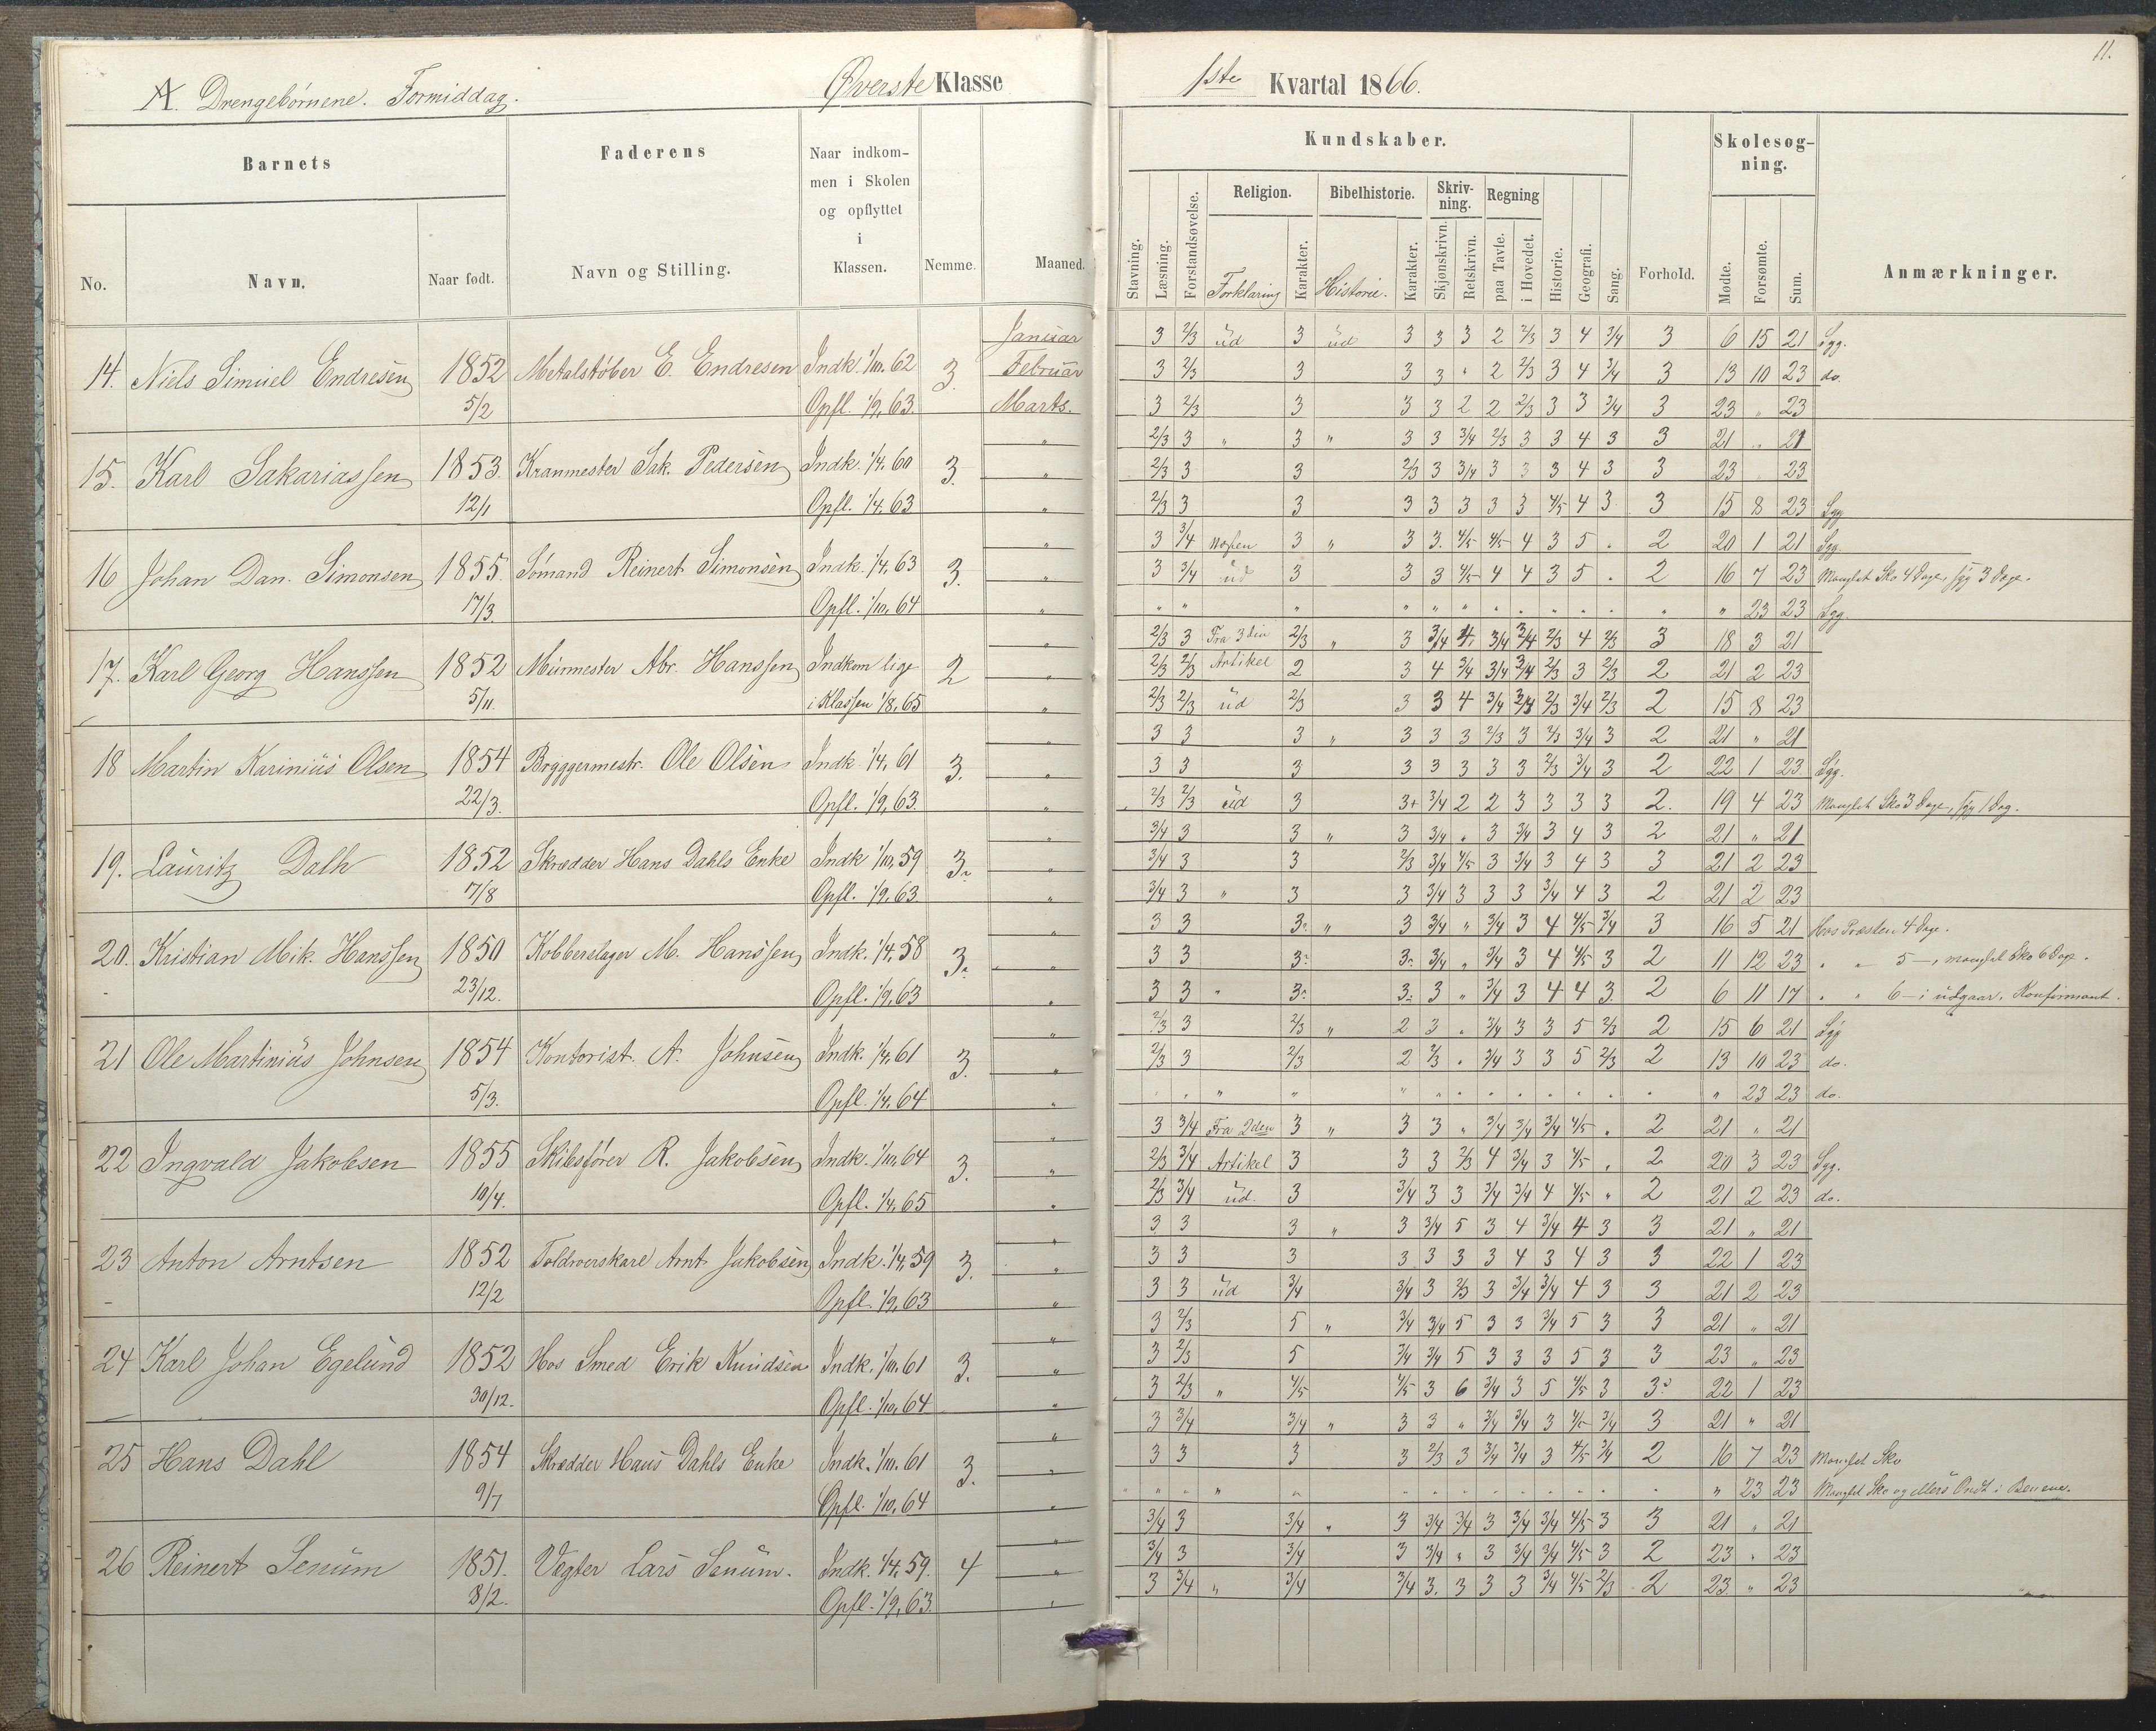 A. Drengebörnene. Formiddag. Øverste Klasse
1ste Kvartal 1866. 11.
Barnets
Faderens
Naar indkom-
men i Skolen
og opflyttet
i
Klassen.
No. Navn. Naar født. Navn og Stilling. Nemme. Maaned.
Kundskaber.
Skolesøg-
ning.
Religion. Bibelhistorie. Skriv-
ning. Regning
Stavning. Læsning. Forstandsøvelse. Forklaring Karakter. Historie. Karakter. Skjönskrivn. Retskrivn. paa Tavle. i Hovedet. Historie. Geografi. Sang. Forhold. Mødte. Forsømte. Sum. Anmærkninger.
14. Niels Simüel Endresen 1852 5/2 Metalstöber E. Endresen Indk. 1/10. 62 Opfl. 1/9, 63. 3.
Janüar 3 2/3 üd 3 üd 3 3 3 2 2/3 3 4 3/4 3 6 15 21 Syg.
Februar 3 2/3 3 3 3 " 2 2/3 3 4 3/4 3 13 10 23 do.
Marts. 3 2/3 3 3 3 2 2 2/3 3 3 3/4 3 23 " 23
15. Karl Sakariassen 1853. 12/1 Kranmester Sak. Pedersen Indk. 1/4. 60 Opfl. 1/4. 63 3.
" 2/3 3 " 3 " 3 3 3/4 2/3 3 3 4 3 3 21 " 21
" 2/3 3 3 2/3 3 3/4 3 3 3 4 3 3 23 23
" 2/3 3 3 3 3 3 3 3 4/5 4 3 3 15 8 23 Syg
16 Johan Dan. Simonsen 1855. 17/3. Sömand Reinert Simonsen Indk. 1/4, 63 Opfl. 1/10, 64 3.
" 3 3/4 3 " 3 3. 4/5 4/5 4 3 5 . 2 20 1 21 Syg.
" 3 3/4 üd 3 3 3 4/5 4 4 3 5 . 2 16 7 23 Manglet Sko 4 Dage, syg 3 Dage.
" " " " " " " " " " " " " " " 23 23 Syg.
17. Karl Georg Hanssen 1852 5/11. Mürmester Abr. Hanssen Indkom lige i Klassen 1/8, 65 2
" 2/3 3 Fra 3die 2/3 " 3 3/4 4 3/4 3/4 2/3 4 2/3 3 18 3 21
" 2/3 2/3 Artikel 2 3 4 3/4 3/4 3/4 2/3 3 2/3 2 21 2 23
" 2/3 2/3 üd 2/3 3 3 4 3/4 3/4 2/3 3/4 2/3 2 15 8 23
18 Martin Karinius Olsen 1854 22/3. Bryggermestr. Ole Olsen Indk. 1/4, 61 Opfl. 1/9, 63. 3.
" 3 3 3 " 3 3 3 2/3 3 2/3 3/4 3 2 21 " 21
" 3 3 3 3 3 3 3 3 2/3 3/4 3 2 22 1 23 Syg.
" 2/3 2/3 üd 3 3+ 3/4 2 2 3 3 3 3 2. 19 4 23 Manglet Sko 3 Dage, syg 1 Dag.
19. Lauritz Dalh 1852 7/8 Skrædder Hans Dahls Enke Indk 1/10, 59 Opfl. 1/9, 63. 3.
" 3/4 3 3 " 3 3/4 " 3 3/4 3 4 3 2 21 " 21
" 3/4 3 3 2/3 3/4 4/5 3 3/4 3 4 3 3 21 2 23
" 3/4 3 " 3 3 3/4 3 3 3 3/4 4 3 2 21 2 23
20. Kristian Mik. Hanssen 1850 23/12. Kobberslager M. Hanssen Indk. 1/4, 58 Opfl. 1/9, 63 3.
" 3 3 3. " 3 3/4 " 3/4 3 4 4/5 3/4 3 16 5 21 Hos Præsten 4 Dage.
" 3 3 3. 3. 3/4 " 3/4 3 4 4/5 3 2 11 12 23 " " 5 —, manglet Sko 6 Dage.
" 3 3 " 3. 3. 3 " 3/4 3 4 4 3. 2 6 11 17 " " 6 — i üdgaar. Konfirmant.
21 Ole Martinius Johnsen 1854 5/3. Kontorist. A. Johnsen Indk. 1/4, 61 Opfl. 1/4, 64 3.
" 2/3 3 2/3 " 2 3 " 3/4 3 3 5 2/3 2 15 6 21 Syg
" 2/3 3 2/3 2 2/3 " 3/4 3 3 5 2/3 2 13 10 23 do.
" " " " " " " " " " " " " " " 23 23 do.
22 Ingvald Jakobsen 1855 10/4. Skibsförer R. Jakobsen Indk. 1/10, 64 Opfl. 1/4, 65 3.
" 3 3/4 Fra 2den 3 " 3 3 " 3/4 3/4 3/4 4/5 " 2 21 " 21
" 2/3 3/4 Artikel 3 3 3 2/3 4 3/4 3 4/5 " 2 20 3 23 Syg.
" 2/3 3/4 üd. 3 3/4 3 3 3/4 3/4 4 4/5 " 2 21 2 23 do.
23 Anton Arntsen 1852 12/2 Arnt Jakobsen Indk. 1/4, 59 Opfl. 1/9, 63 3.
" 3 3 3 " 3 3/4 5 3 4 3/4 4 3 3 21 " 21
" 3 3 3 3 3 3 3 4 3 4 3 3 22 1 23
" 3 3 üd 3/4 3/4 3 2/3 3 3/4 3/4 4 3 3 21 2 23
24 Karl Johan Egelund 1852 30/12. Hos Smed Erik Knudsen Indk. 1/10, 61 Opfl. 1/10, 64 3.
" 3 2/3 5 " 3/4 3/4 5 3 3 3/4 5 3 3 21 " 21
" 3 2/3 5 3/4 3/4 5 3 3 3 5 3 3 23 " 23
" 3 2/3 " 4/5 4/5 3 6 3/4 3 5 4/5 3 3. 22 1 23
25 Hans Dahl 1854 9/7 Skrædder Hans Dahls Enke Indk. 1/10. 61 Opfl. 1/10, 64 3.
" 3 3/4 3/4 " 3 3 " 3/4 3/4 3 4/5 3/4 3 21 " 21
" 3 3 3 3 2/3 3 3/4 3/4 3 4/5 3/4 2 16 7 23 Manglet Sko
" " " " " " " " " " " " " " " 23 23 Manglet Sko og Ondt i Benene.
26 Reinert Senum 1851. 8/2. Vægter Lars Senum. Indk. 1/4, 59. Opfl. 1/9, 63. 4
" 3/4 3 3/4 " 3 3/4 3/4 3 3/4 3/4 4/5 3 3 21 " 21
" 3/4 3 3/4 3 3/4 " 3 3/4 3/4 4/5 3 2 23 " 23
" 3 3/4 " 3/4 3/4 3. 3 3 3 3/4 4/5 2/3 2 23 " 23